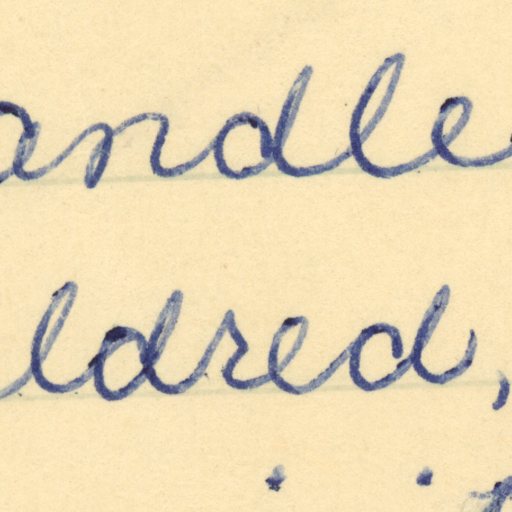 andle
ldred,